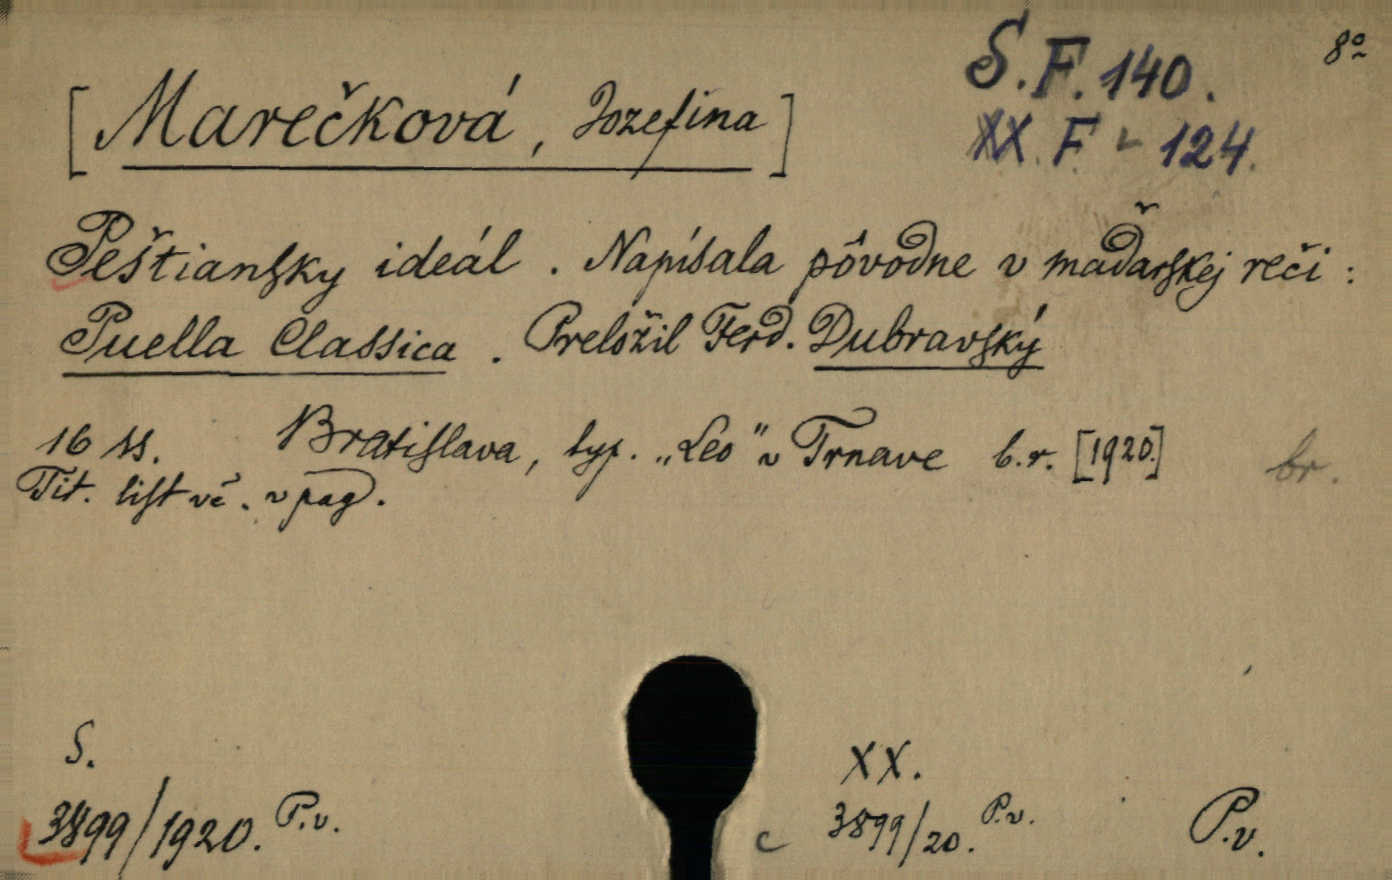 8º
S. F. 140.
[Marečková, Jozefina]
XX. F - 124.
Peštiansky ideál. Napísala pôvodne v maďarskej reči:
Puella Classica. Preložil Ferd. Dubravský
16 ss. Bratislava, typ. „Leo" v Trnave b. r. [1920.] br.
Tit. list vč. v pag.
S. XX.
3899/1920. P.v. c 3899/20. P.v. P.v.